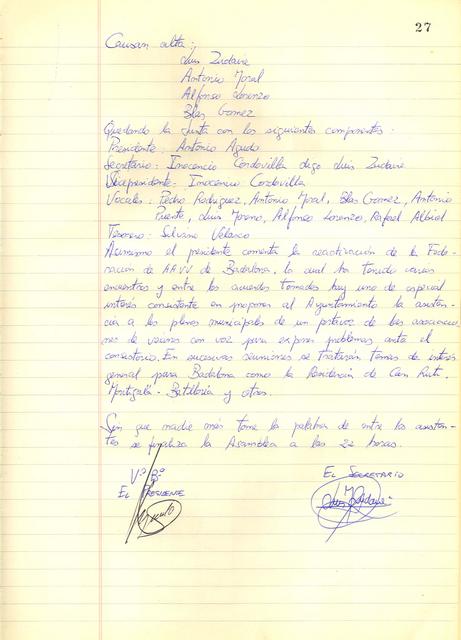 27
Causan alta:
Luis Zudaire
Antonio Moral
Alfonso Lorenzo
Blas Gomez
Quedando la Junta con los siguientes componentes:
Presidente: Antonio Agudo
Secretario: Inocencio Cordovilla digo Luis Zudaire
Vicepresidente- Inocencio Cordovilla
Vocales: Pedro Rodriguez, Antonio Moral, Blas Gomez, Antonio
Puerto, Luis Moreno, Alfonso Lorenzo, Rafael Albiol
Tesorero: Silvino Velasco
Asimismo el presidente comenta la reactivación de la Fede-
ración de AAVV de Badalona, la cual ha tenido varios
encuentros y entre los acuerdos tomados hay uno de especial
interés consistente en proponer al Ayuntamiento la asisten-
cia a los plenos municipales de un portavoz de las asociacio
nes de vecinos con voz para exponer problemas ante el
consistorio. En sucesivas reuniones se tratarán temas de interés
general para Badalona como la Residencia de Can Ruti-
Montigalá - Batlloria y otros.
Sin que nadie más tome la palabra de entre los asisten-
tes se finaliza la Asamblea a las 22 horas.
Vº Bº
EL PRESIDENTE
EL SECRETARIO